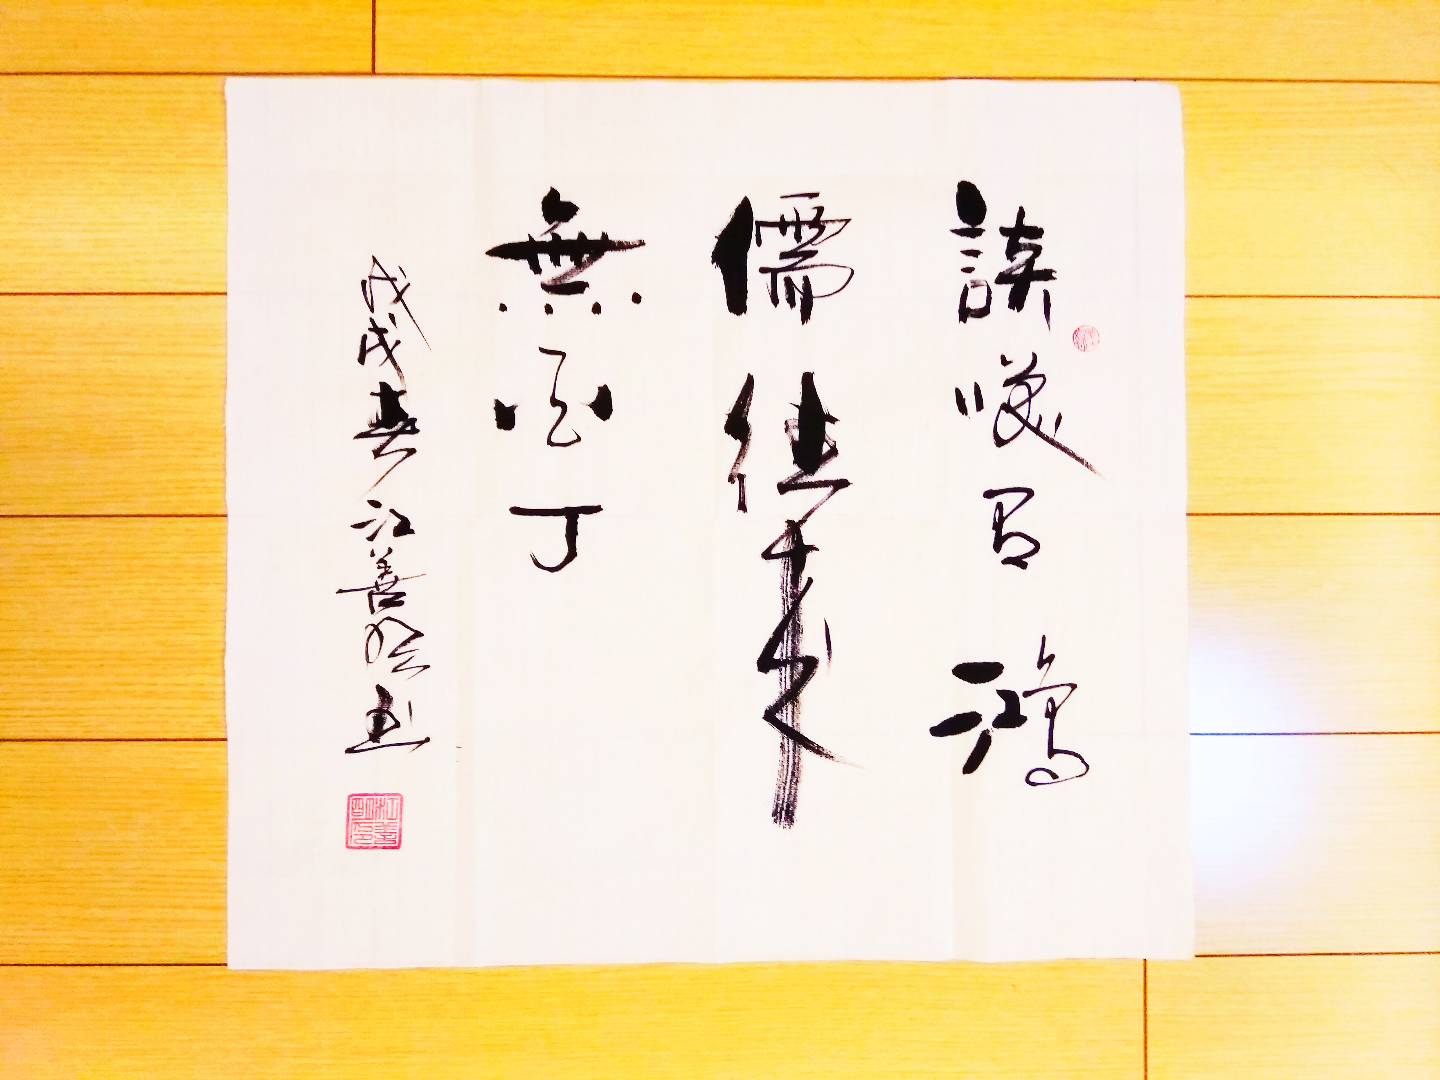 談笑有鴻
儒往來
無白丁
戊戌春江善勝書